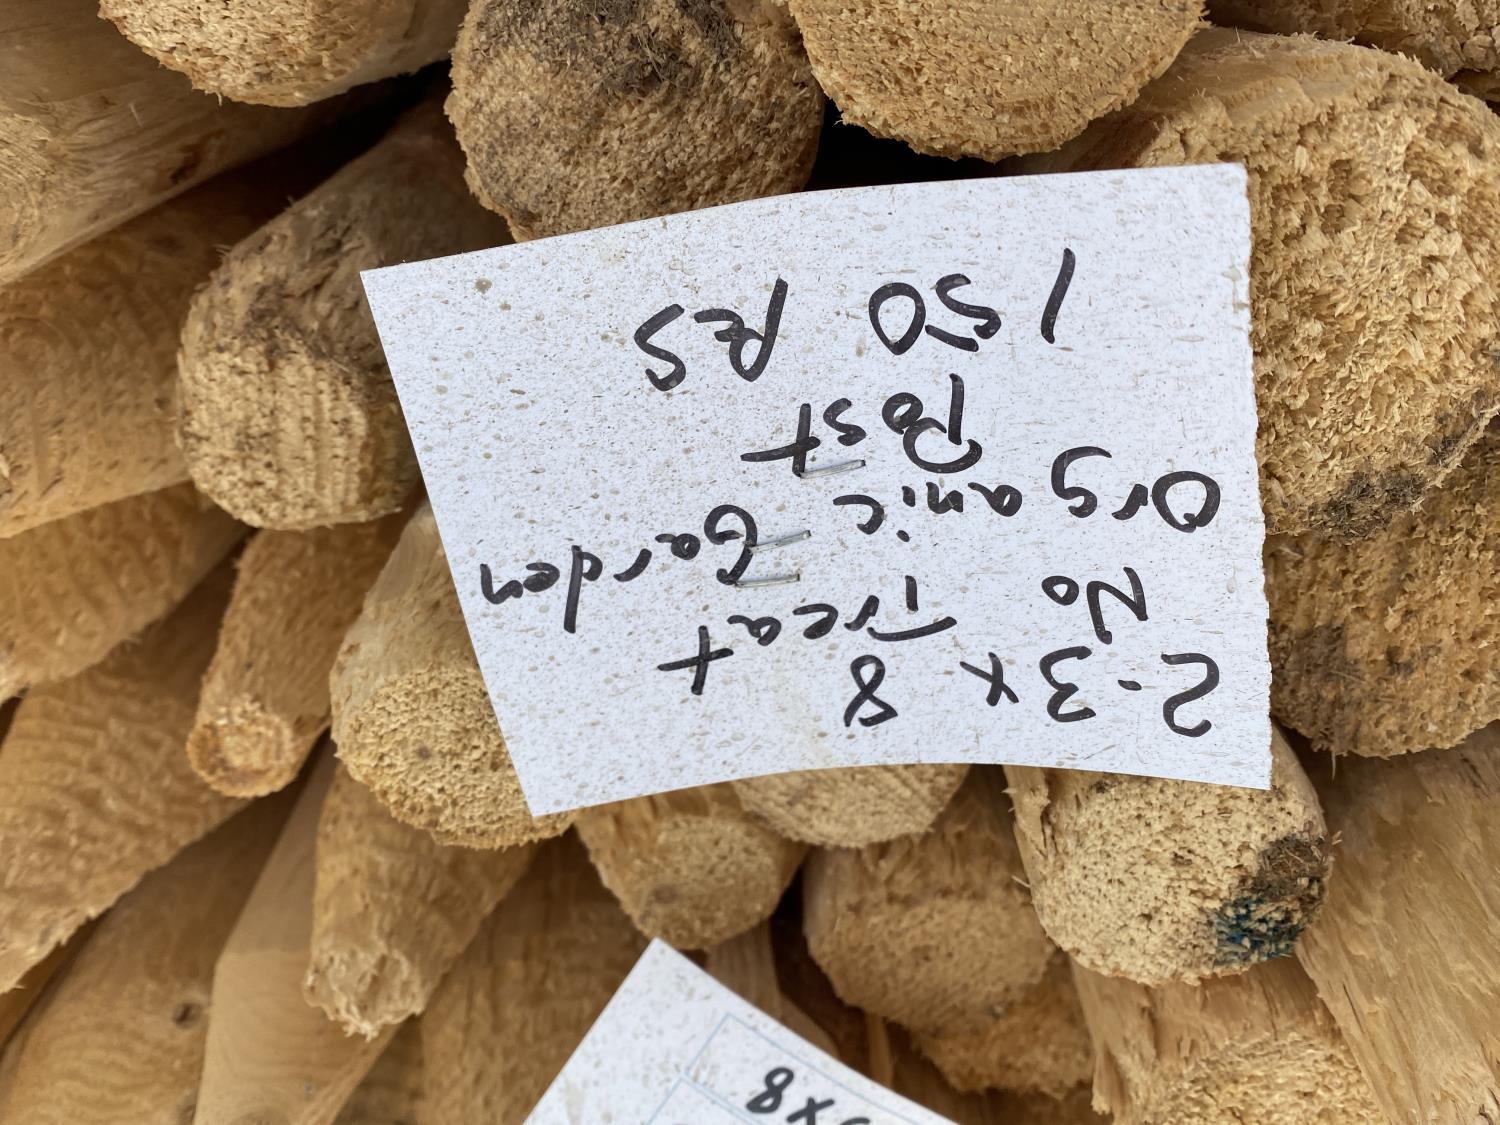 2-3 x 8
No Treat
Organic Garden
Post
150 PCS
x8